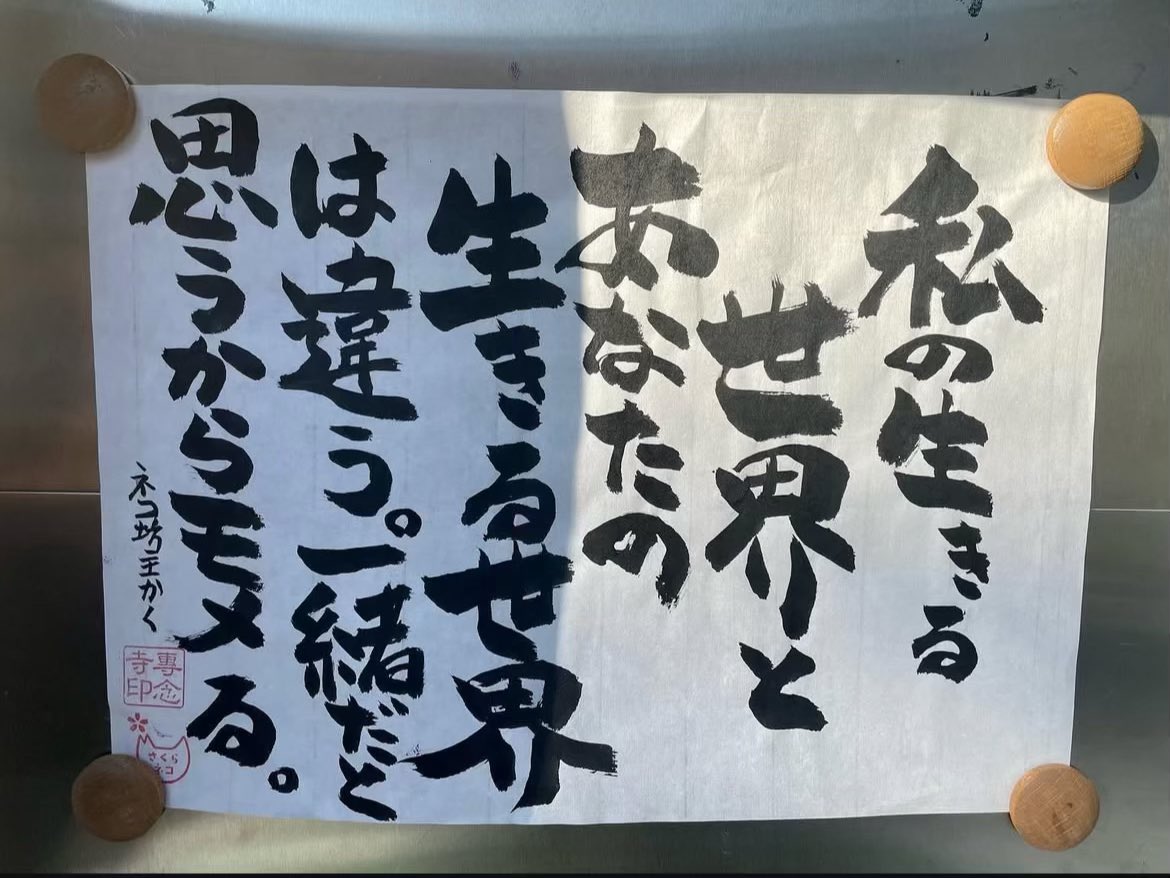 私の生きる
世界と
あなたの
生きる世界
は違う。一緒だと
思うからモメる。
ネコ坊主かく
專念
寺印
さくら
ネコ